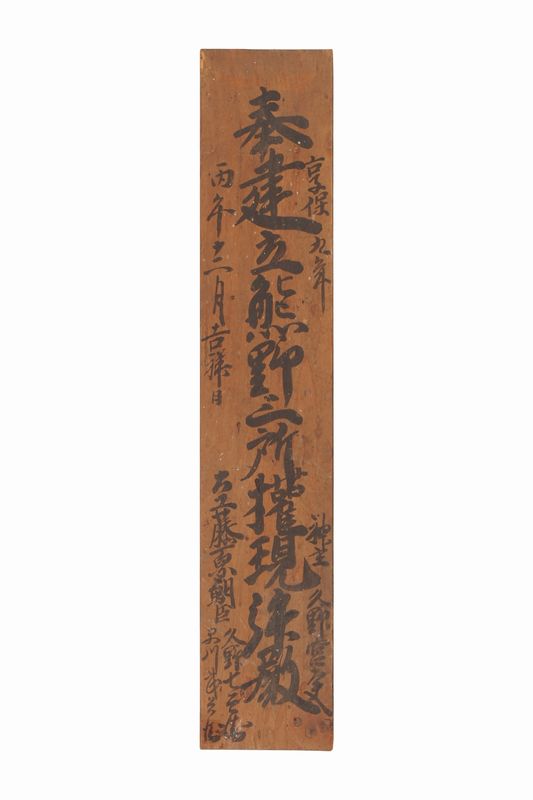 享保九年
奉建立熊野三所権現弥敬
丙午十二月吉祥日
神主久野宮太夫
大工藤原朝臣
久野七兵衛
早川